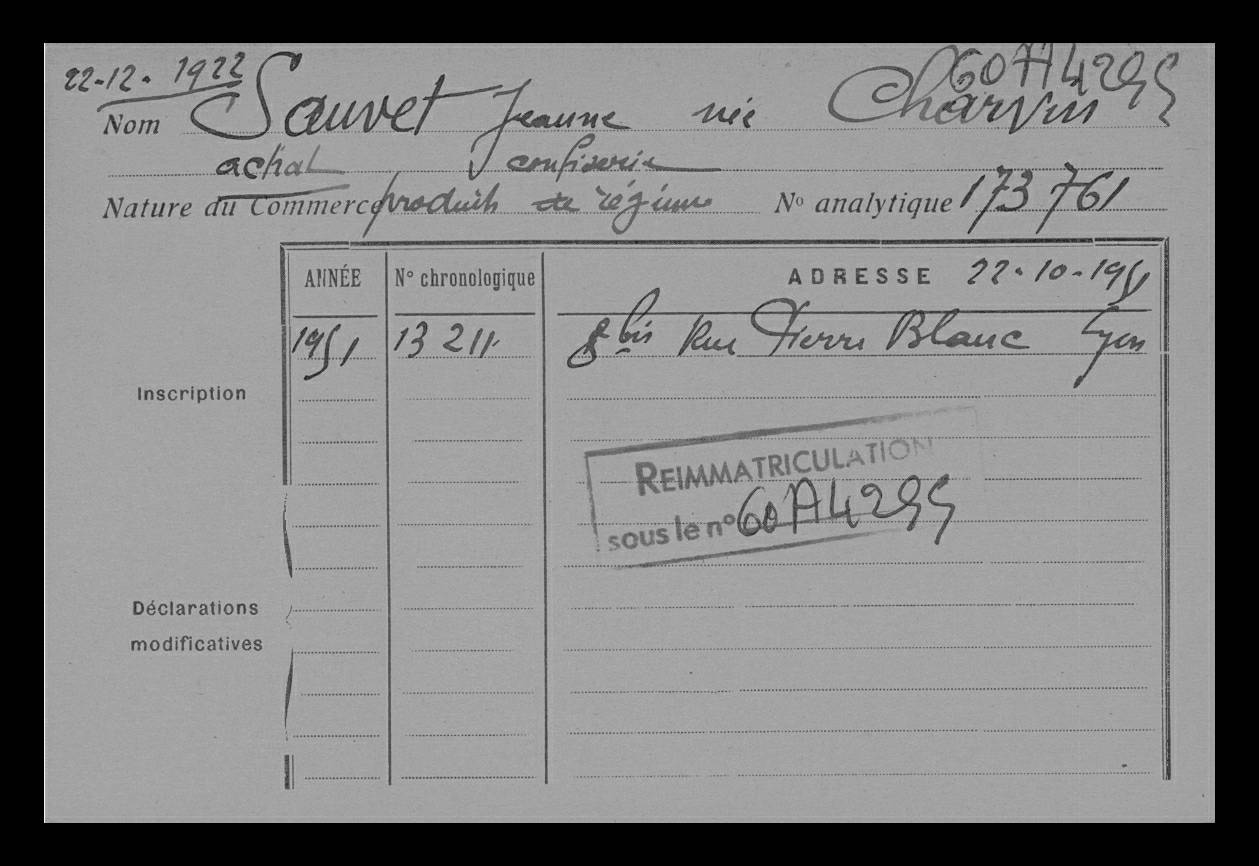 22-12-1922
60A4295
Nom Sauvet Jeanne née Charvin
achat confiserie
Nature du Commerce produits de régime N° analytique 173 761
ANNÉE N° chronologique ADRESSE 22-10-1951
1951 13 211 8 bis Rue Pierre Blanc Lyon
Inscription
REIMMATRICULATION
sous le n° 60A4295
Déclarations
modificatives